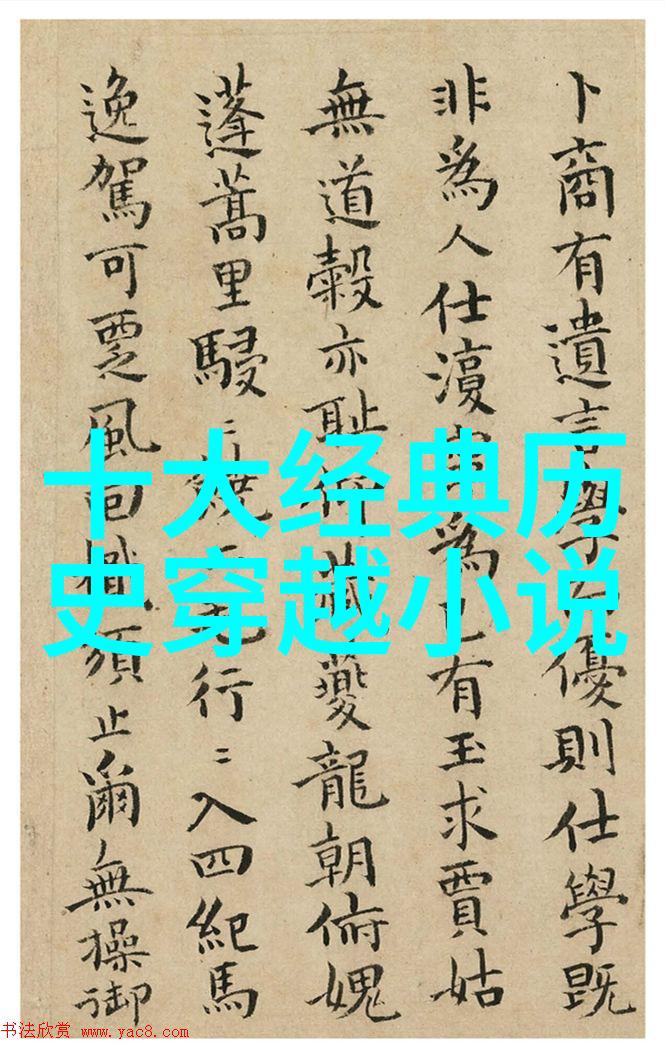 卜商有遺言學優則仕學既
非爲人仕爲己有玉求賈姑
無道穀亦恥夔龍朝俯媿
蓬蒿里駸行入四紀馬
逸駕可覂風回須止爾無操御
十大经典历
史穿越小说
书法欣赏 www.yac8.com